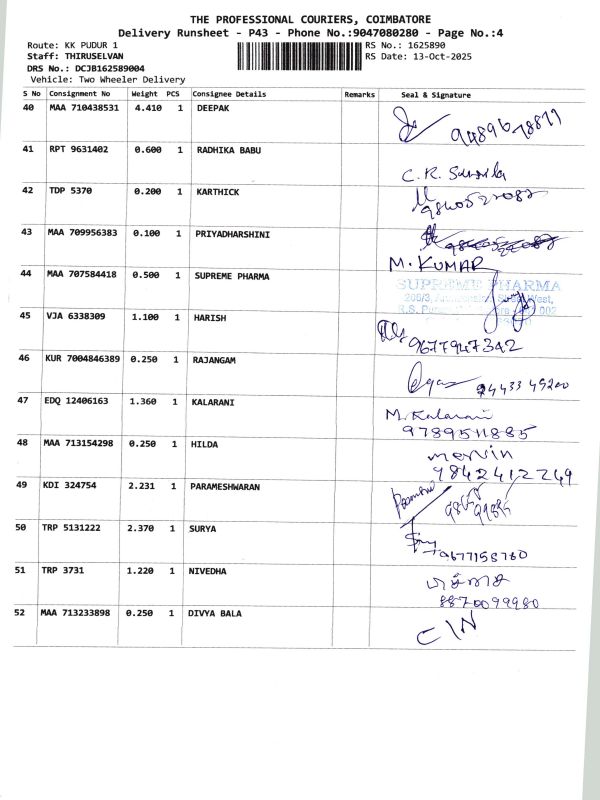 THE PROFESSIONAL COURIERS, COIMBATORE
Delivery Runsheet - P43 - Phone No.:9047080280 - Page No.:4
Route: KK PUDUR 1 RS No.: 1625890
Staff: THIRUSELVAN RS Date: 13-Oct-2025
DRS No.: DCJB162589004
Vehicle: Two Wheeler Delivery
S No Consignment No Weight PCS Consignee Details Remarks Seal & Signature
40 MAA 710438531 4.410 1 DEEPAK
41 RPT 9631402 0.600 1 RADHIKA BABU
C.R.
42 TDP 5370 0.200 1 KARTHICK
43 MAA 709956383 0.100 1 PRIYADHARSHINI
M. KUMAR
44 MAA 707584418 0.500 1 SUPREME PHARMA
SUPREME PHARMA
45 VJA 6338309 1.100 1 HARISH
9677947342
46 KUR 7004846389 0.250 1 RAJANGAM
47 EDQ 12406163 1.360 1 KALARANI
M. Kalarani
9789511885
48 MAA 713154298 0.250 1 HILDA
mervin
9842412249
49 KDI 324754 2.231 1 PARAMESHWARAN
50 TRP 5131222 2.370 1 SURYA
9677158760
51 TRP 3731 1.220 1 NIVEDHA
8870099980
52 MAA 713233898 0.250 1 DIVYA BALA